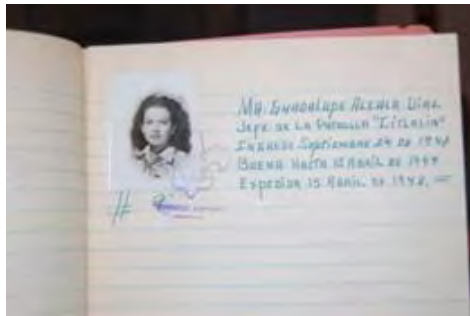 Ma. Guadalupe Alcala Diaz
Jefe de la Patrulla "Citlalin"
Ingreso Septiembre 24 de
Buena Hasta 15 Abril de 1949
Expedida 15 Abril de 1948.
#